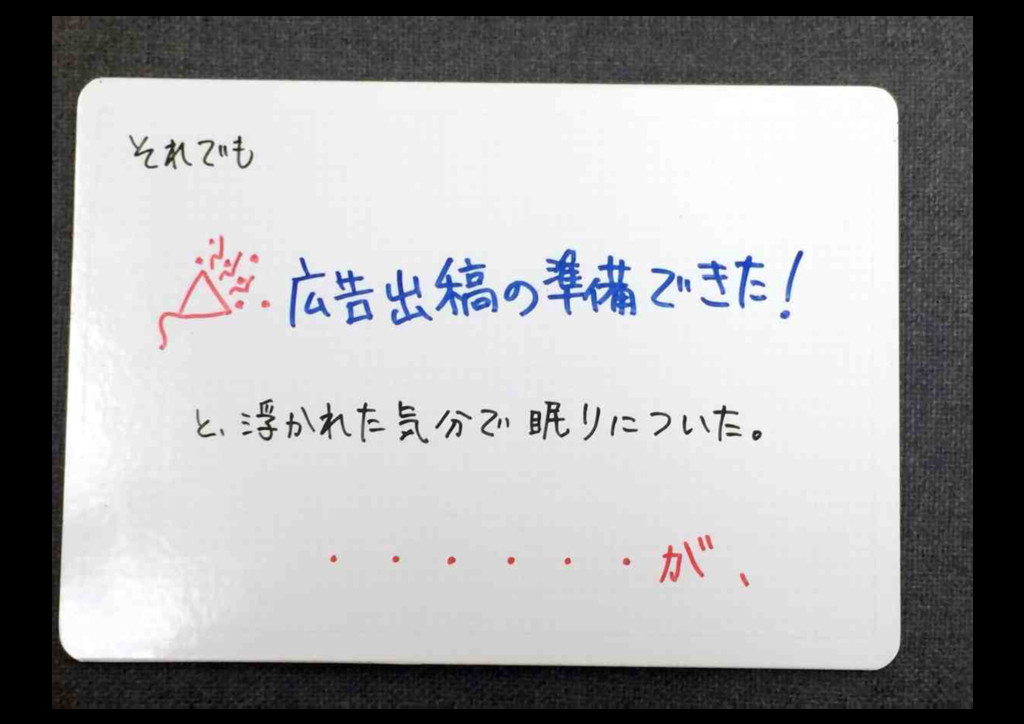 それでも
広告出稿の準備できた!
と、浮かれた気分で眠りについた。
・・・・・・が、